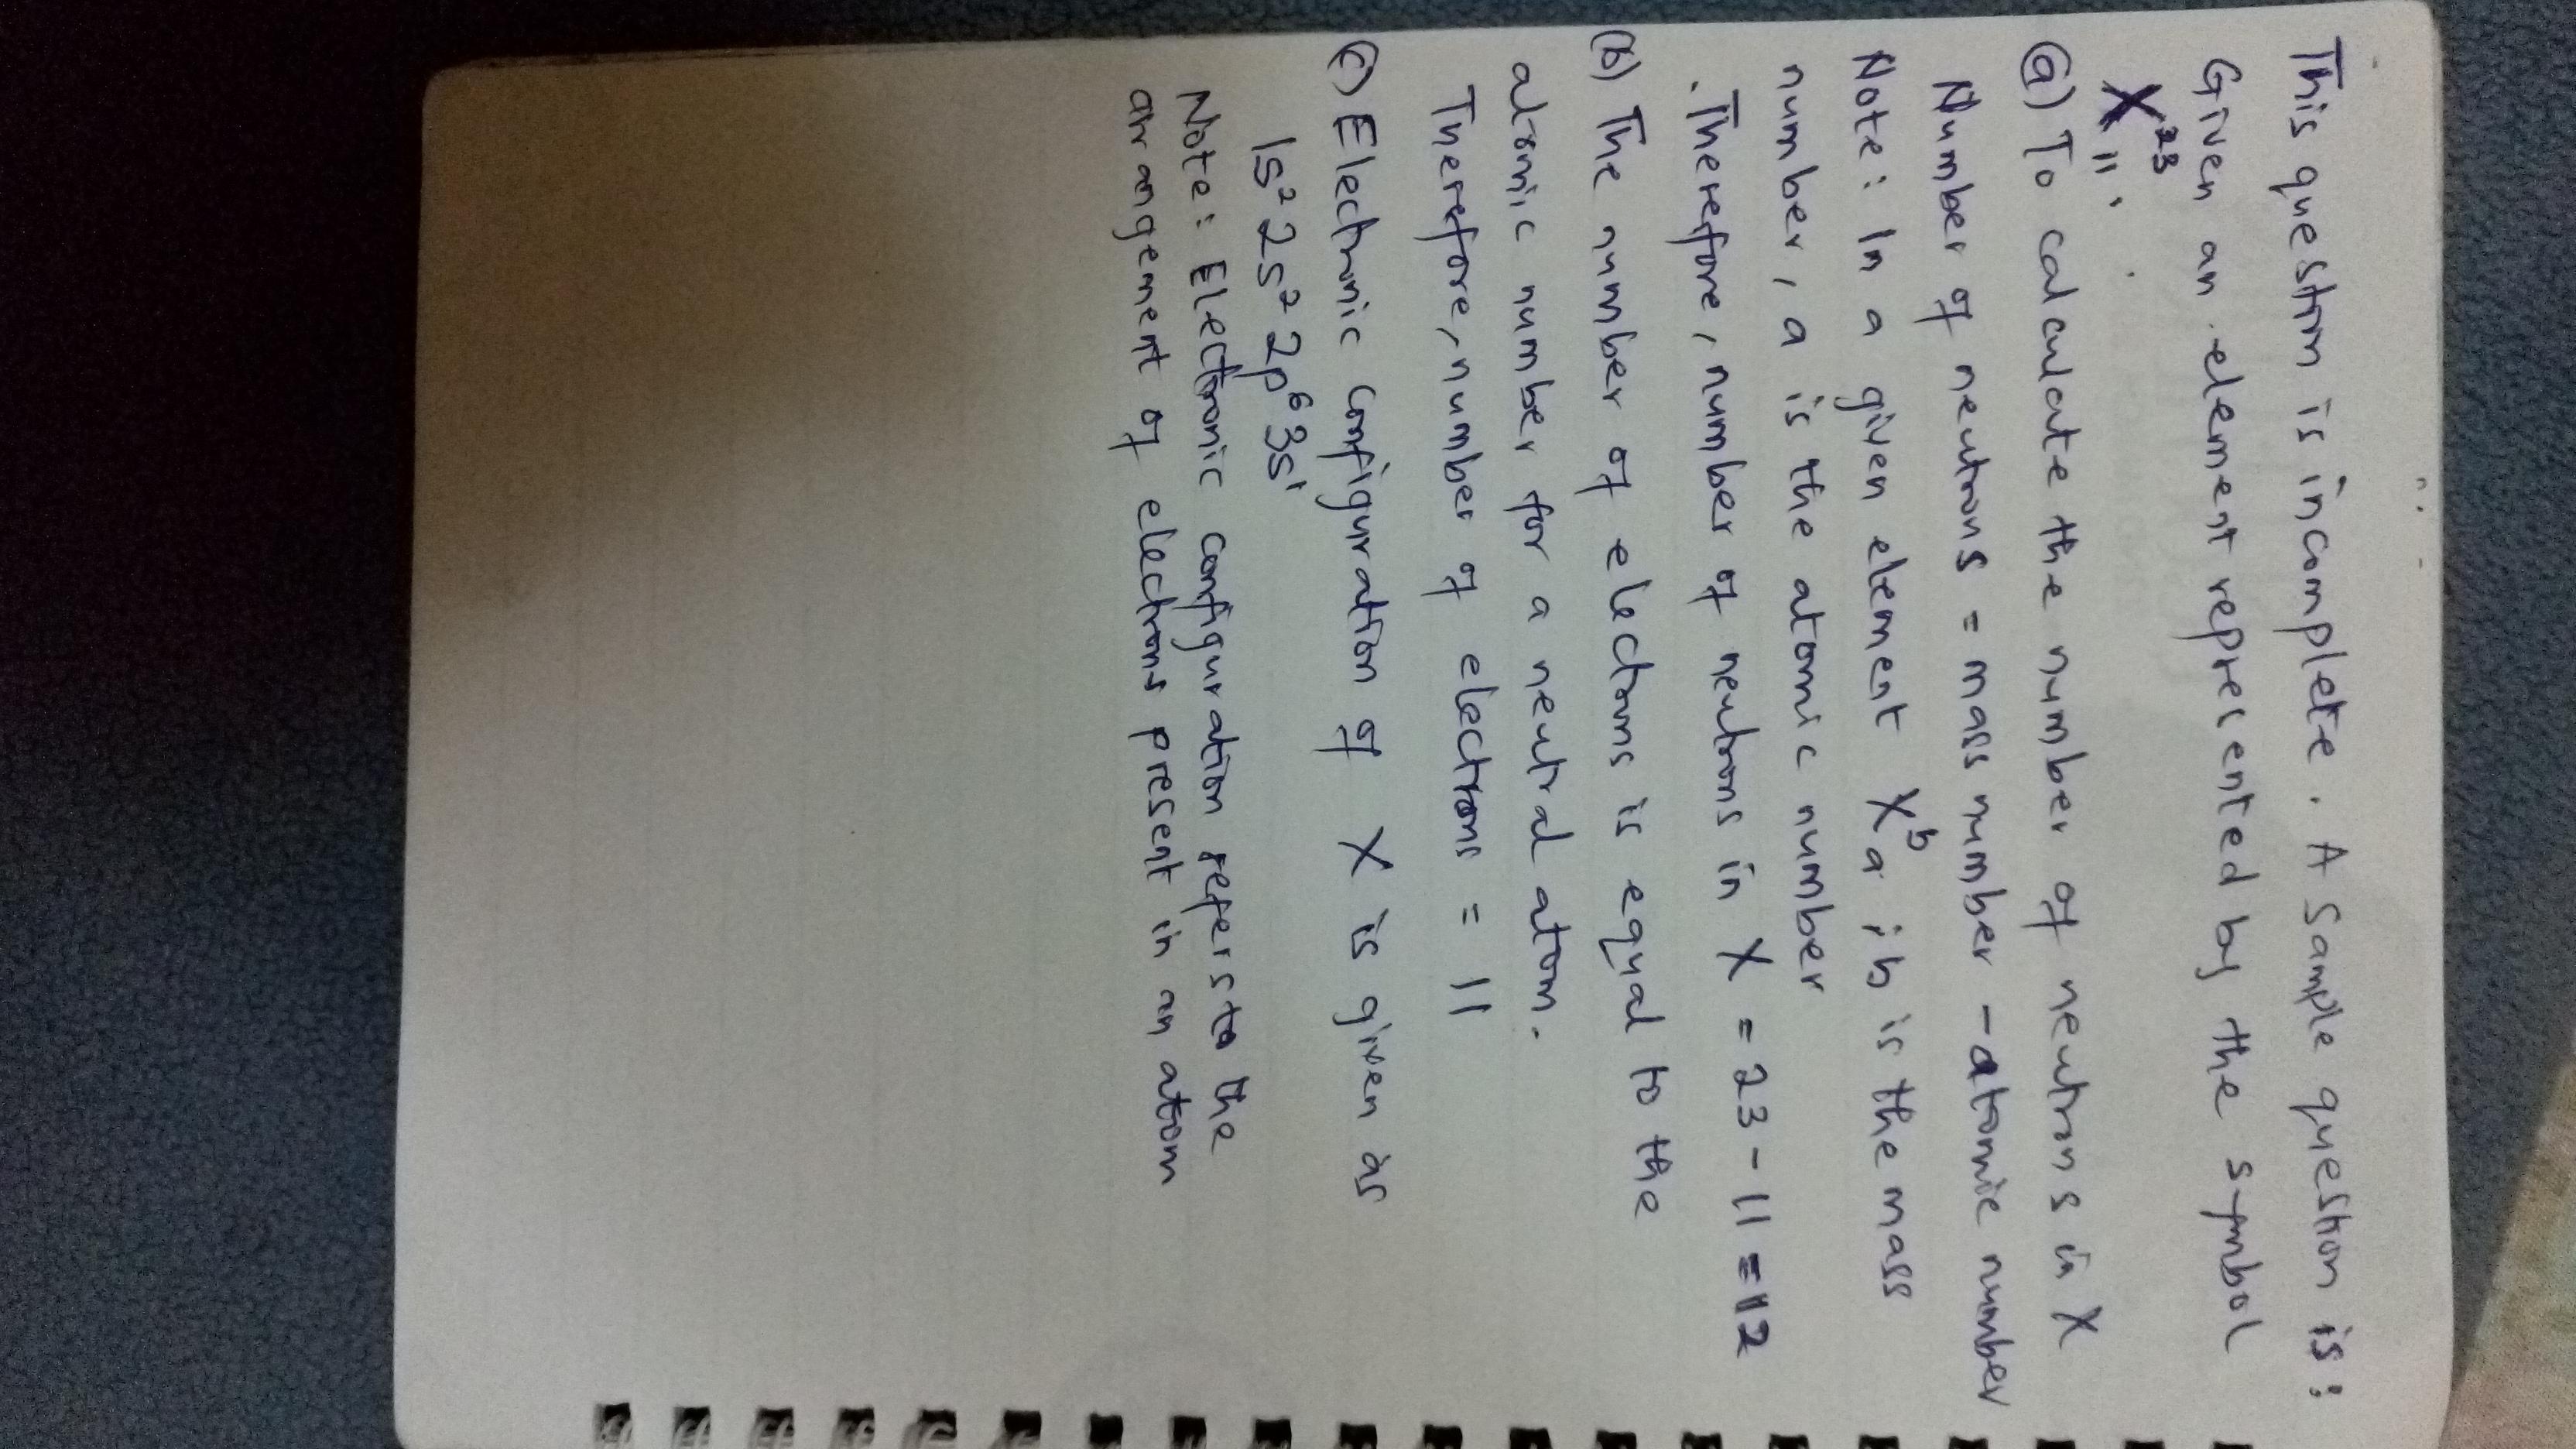 This question is incomplete. A sample question is:
Given an element represented by the symbol
X²³₁₁.
(a) To calculate the number of neutrons in X
Number of neutrons = mass number - atomic number
Note: In a given element Xᵇₐ ; b is the mass
number, a is the atomic number
. Therefore, number of neutrons in X = 23 - 11 = 12
(b) The number of electrons is equal to the
atomic number for a neutral atom.
Therefore, number of electrons = 11
(c) Electronic configuration of X is given as
1s² 2s² 2p⁶ 3s¹
Note: Electronic configuration refers to the
arrangement of electrons present in an atom